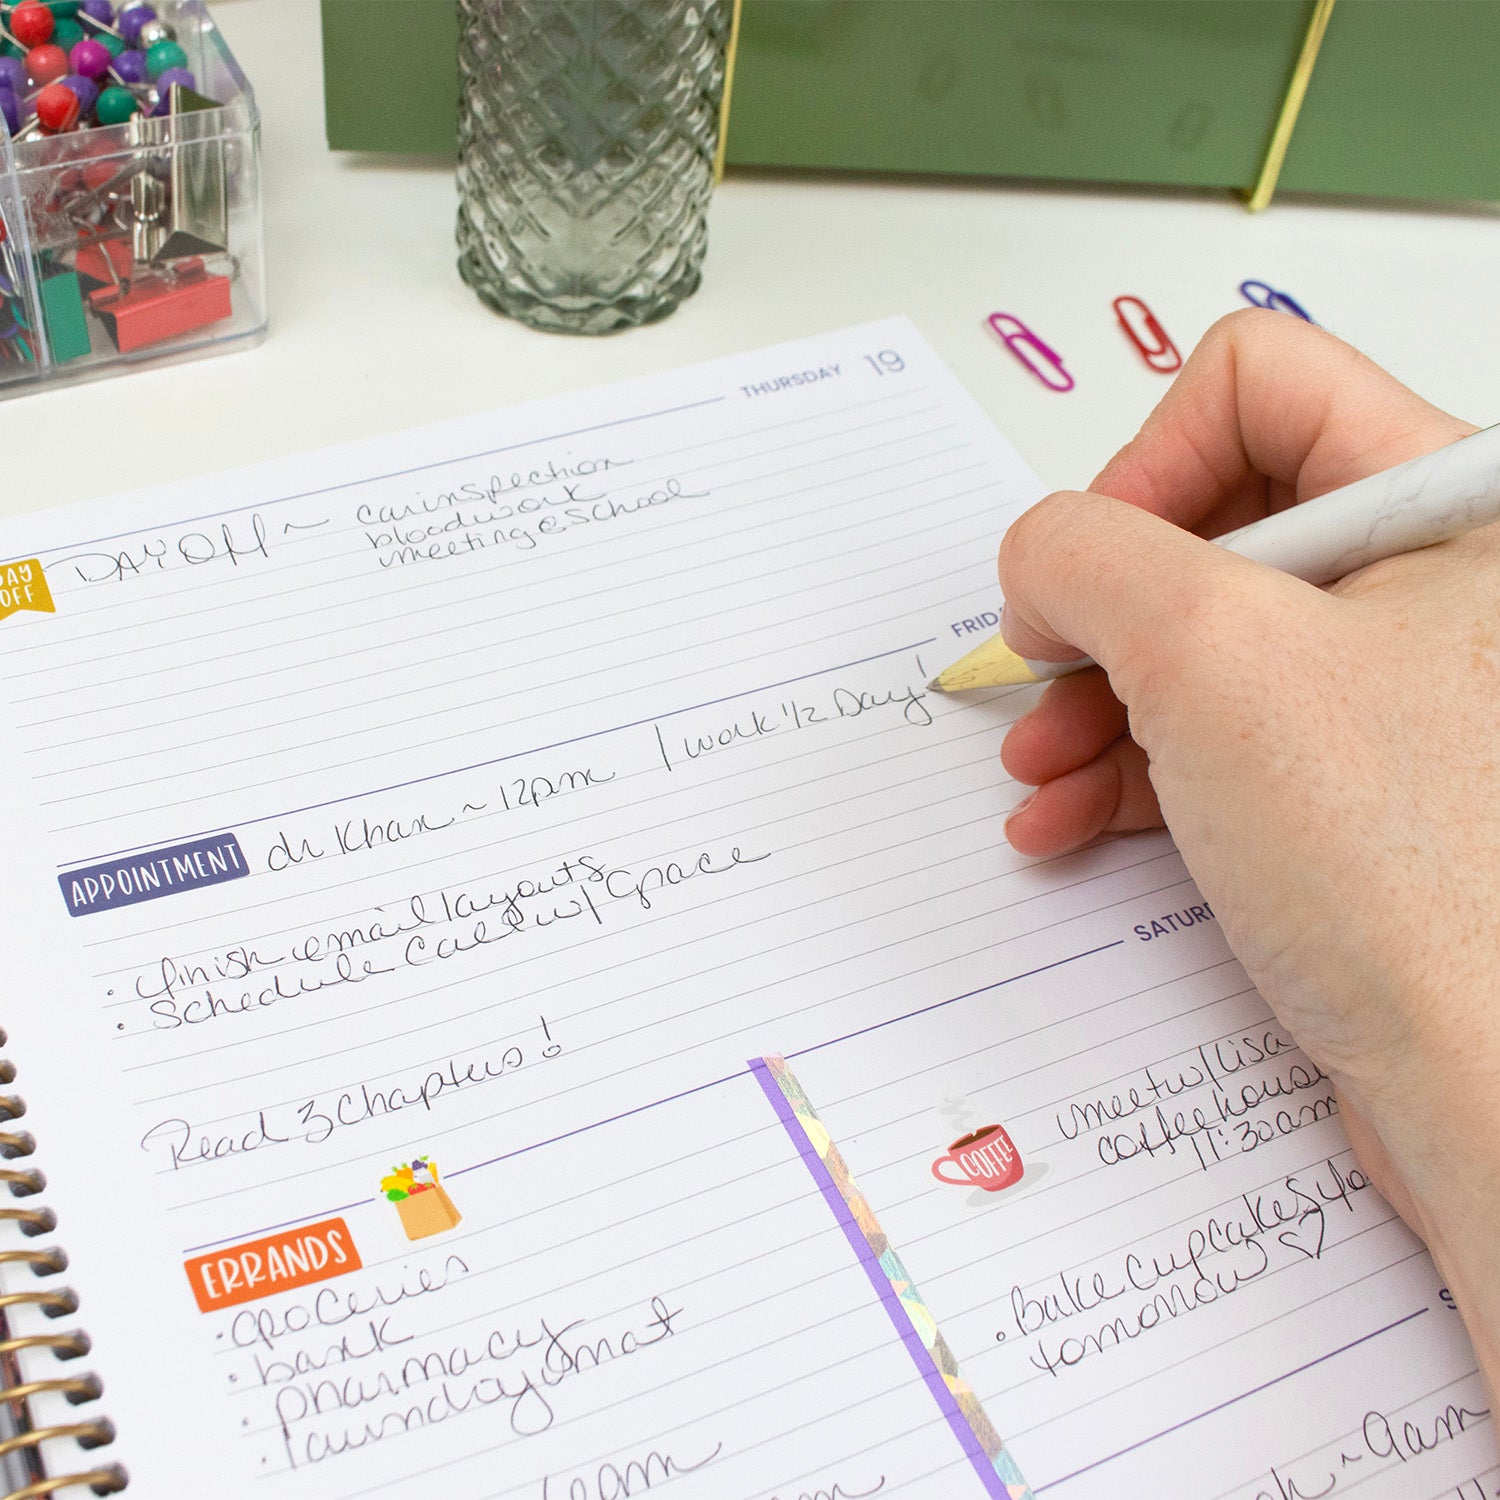 THURSDAY 19
DAY OFF
DAY OFF ~ car inspection
bloodwork
meeting @ school
FRIDA
APPOINTMENT
dr Khan ~ 12pm / work 1/2 Day!
· finish email layouts
· schedule call w/ Grace
Read 3 Chapters!
SATUR
ERRANDS
· groceries
· bank
· pharmacy
· laundrymat
COFFEE
meet w/ Lisa
coffee hous
11:30am
· Bake Cupcakes fo
tomorrow ♡
S
~ 9am